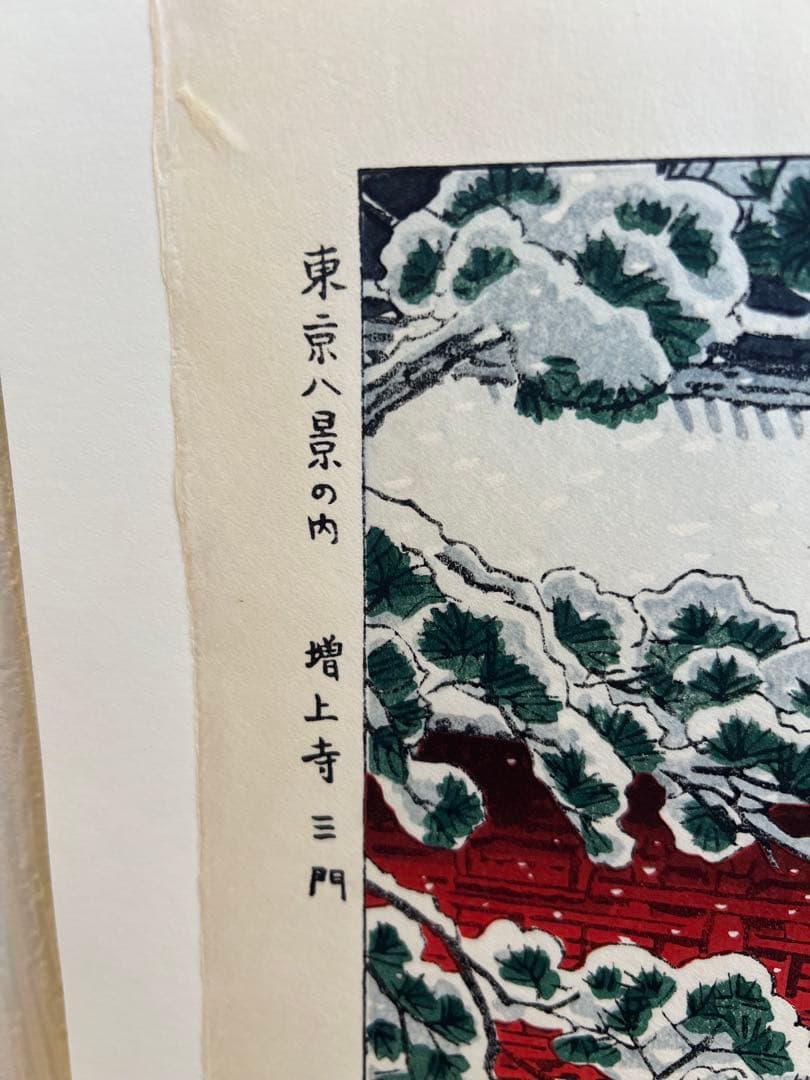 東京八景の内 増上寺三門